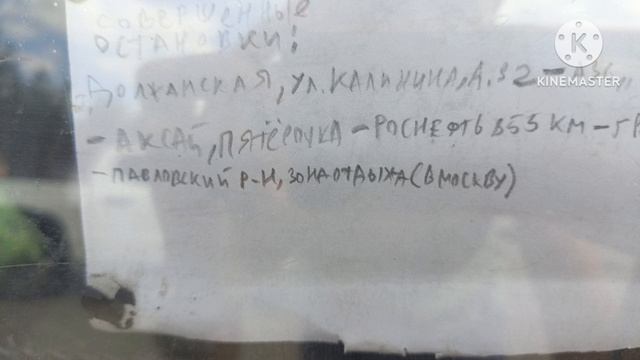 СОВЕРШЕННЫЕ
ОСТАНОВКИ:
ДОЛЖАНСКАЯ, УЛ. КАЛИНИНА, Д. 32 –
– АКСАЙ, ПЯТЁРОЧКА – РОСНЕФТЬ 855 КМ –
– ПАВЛОВСКИЙ Р-Н, ЗОНА ОТДЫХА (В МОСКВУ)
KINEMASTER